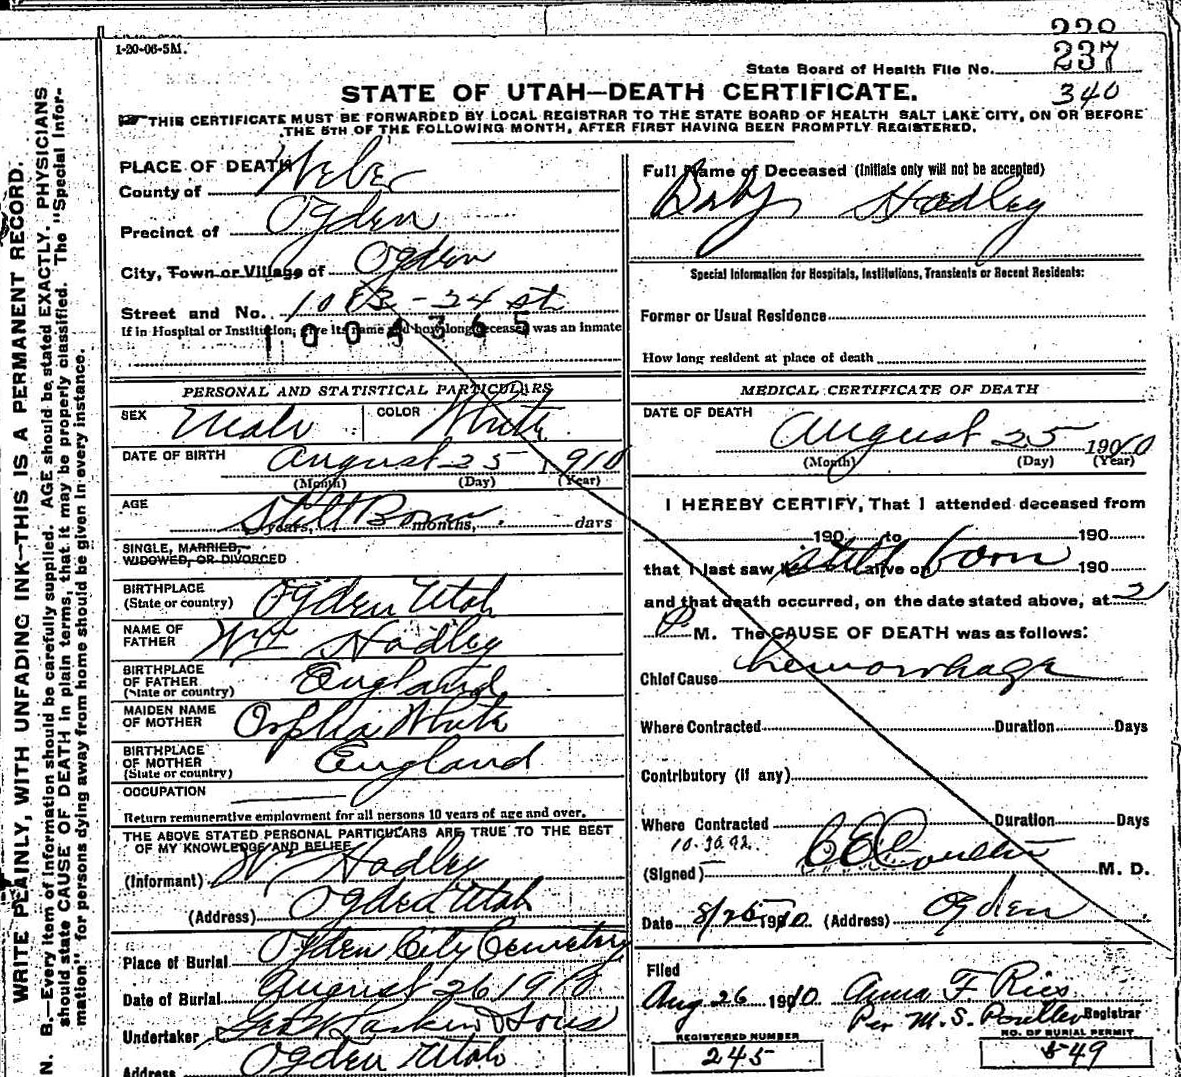 228
1-20-06-5M.
State Board of Health File No. 237
340
STATE OF UTAH—DEATH CERTIFICATE.
THIS CERTIFICATE MUST BE FORWARDED BY LOCAL REGISTRAR TO THE STATE BOARD OF HEALTH SALT LAKE CITY, ON OR BEFORE
THE 5TH OF THE FOLLOWING MONTH, AFTER FIRST HAVING BEEN PROMPTLY REGISTERED.
WRITE PLAINLY, WITH UNFADING INK—THIS IS A PERMANENT RECORD.
N. B.—Every item of information should be carefully supplied. AGE should be stated EXACTLY. PHYSICIANS
should state CAUSE OF DEATH in plain terms, that it may be properly classified. The "Special Infor-
mation" for persons dying away from home should be given in every instance.
PLACE OF DEATH
County of Weber
Precinct of Ogden
City, Town or Village of Ogden
Street and No. 1083 - 24 st
If in Hospital or Institution, give its name and how long deceased was an inmate
1004365
PERSONAL AND STATISTICAL PARTICULARS
SEX Male COLOR White
DATE OF BIRTH August 25 1910
(Month) (Day) (Year)
AGE Still Born
years, months, days
SINGLE, MARRIED,
WIDOWED, OR DIVORCED
BIRTHPLACE
(State or country) Ogden Utah
NAME OF
FATHER Wm Hadley
BIRTHPLACE
OF FATHER
(State or country) England
MAIDEN NAME
OF MOTHER Orpha White
BIRTHPLACE
OF MOTHER
(State or country) England
OCCUPATION
Return remunerative employment for all persons 10 years of age and over.
THE ABOVE STATED PERSONAL PARTICULARS ARE TRUE TO THE BEST
OF MY KNOWLEDGE AND BELIEF
(Informant) Wm Hadley
(Address) Ogden Utah
Place of Burial Ogden City Cemetery
Date of Burial August 26 1910
Undertaker Geo Larkin & Sons
Address Ogden Utah
Full Name of Deceased (Initials only will not be accepted)
Baby Hadley
Special Information for Hospitals, Institutions, Transients or Recent Residents:
Former or Usual Residence
How long resident at place of death
MEDICAL CERTIFICATE OF DEATH
DATE OF DEATH
August 25 1910
(Month) (Day) (Year)
I HEREBY CERTIFY, That I attended deceased from
190 to 190
that I last saw h alive on still born 190
and that death occurred, on the date stated above, at 2
P M. The CAUSE OF DEATH was as follows:
Chief Cause hemorrhage
Where Contracted Duration Days
Contributory (if any)
Where Contracted Duration Days
10.30.92.
(Signed) C E Coulter M. D.
Date 8/25 1910 (Address) Ogden
Filed
Aug 26 1910 Anna F. Ries
Per M. S. Poulter Registrar
REGISTERED NUMBER
245
NO. OF BURIAL PERMIT
549